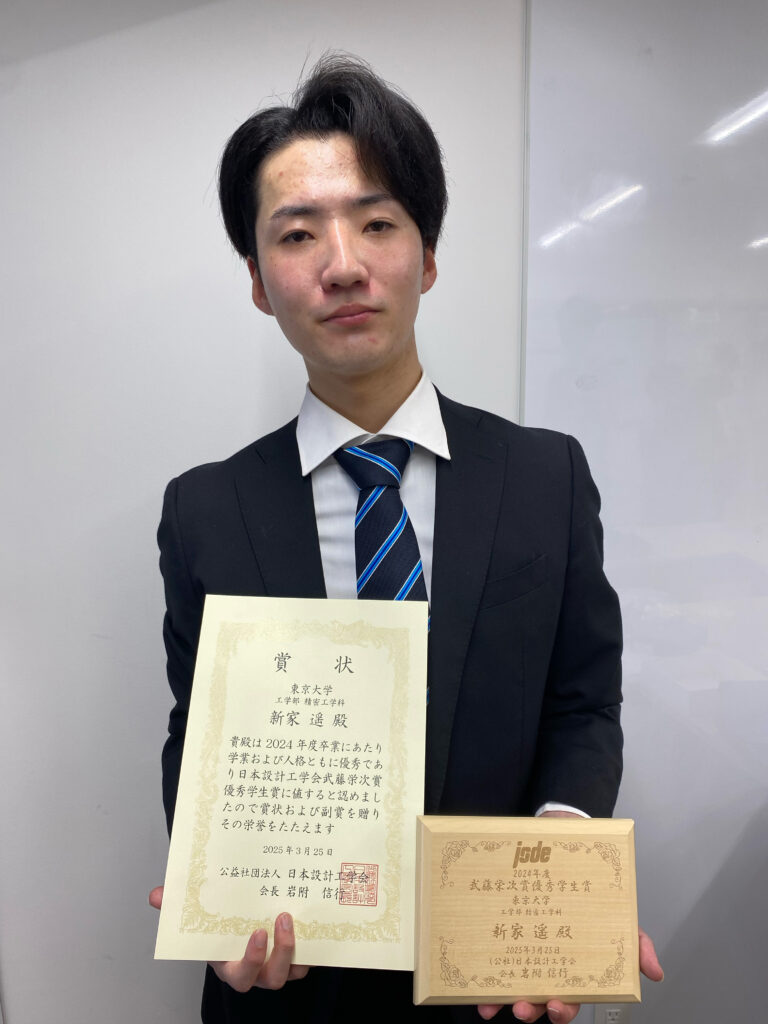 賞 状
東京大学
工学部 精密工学科
新家 遥 殿
貴殿は2024年度卒業にあたり
学業および人格ともに優秀であ
り日本設計工学会武藤栄次賞
優秀学生賞に値すると認めまし
たので賞状および副賞を贈り
その栄誉をたたえます
2025年3月25日
公益社団法人 日本設計工学会
会長 岩附 信行
jsde
2024年度
武藤栄次賞優秀学生賞
東京大学
工学部 精密工学科
新家 遥 殿
2025年3月25日
(公社)日本設計工学会
会長 岩附 信行